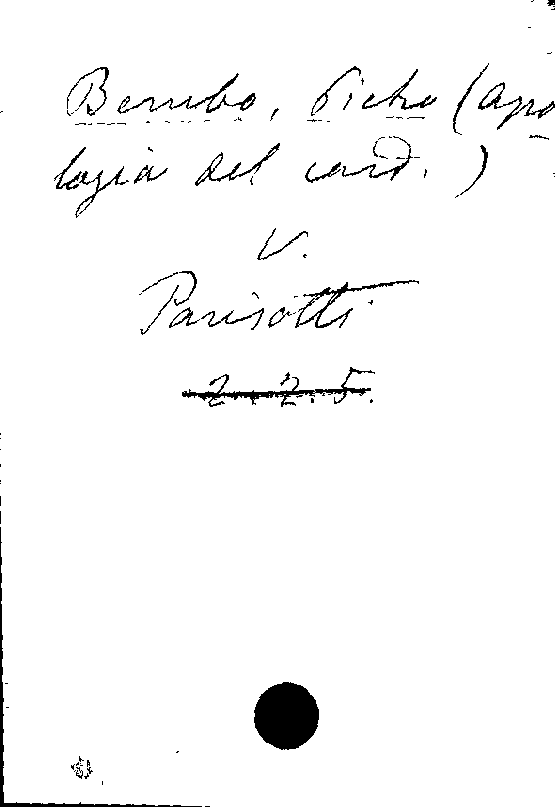 Bembo, Pietro (apo
logia del card.)
V.
Parisotti
2. 2. 5.